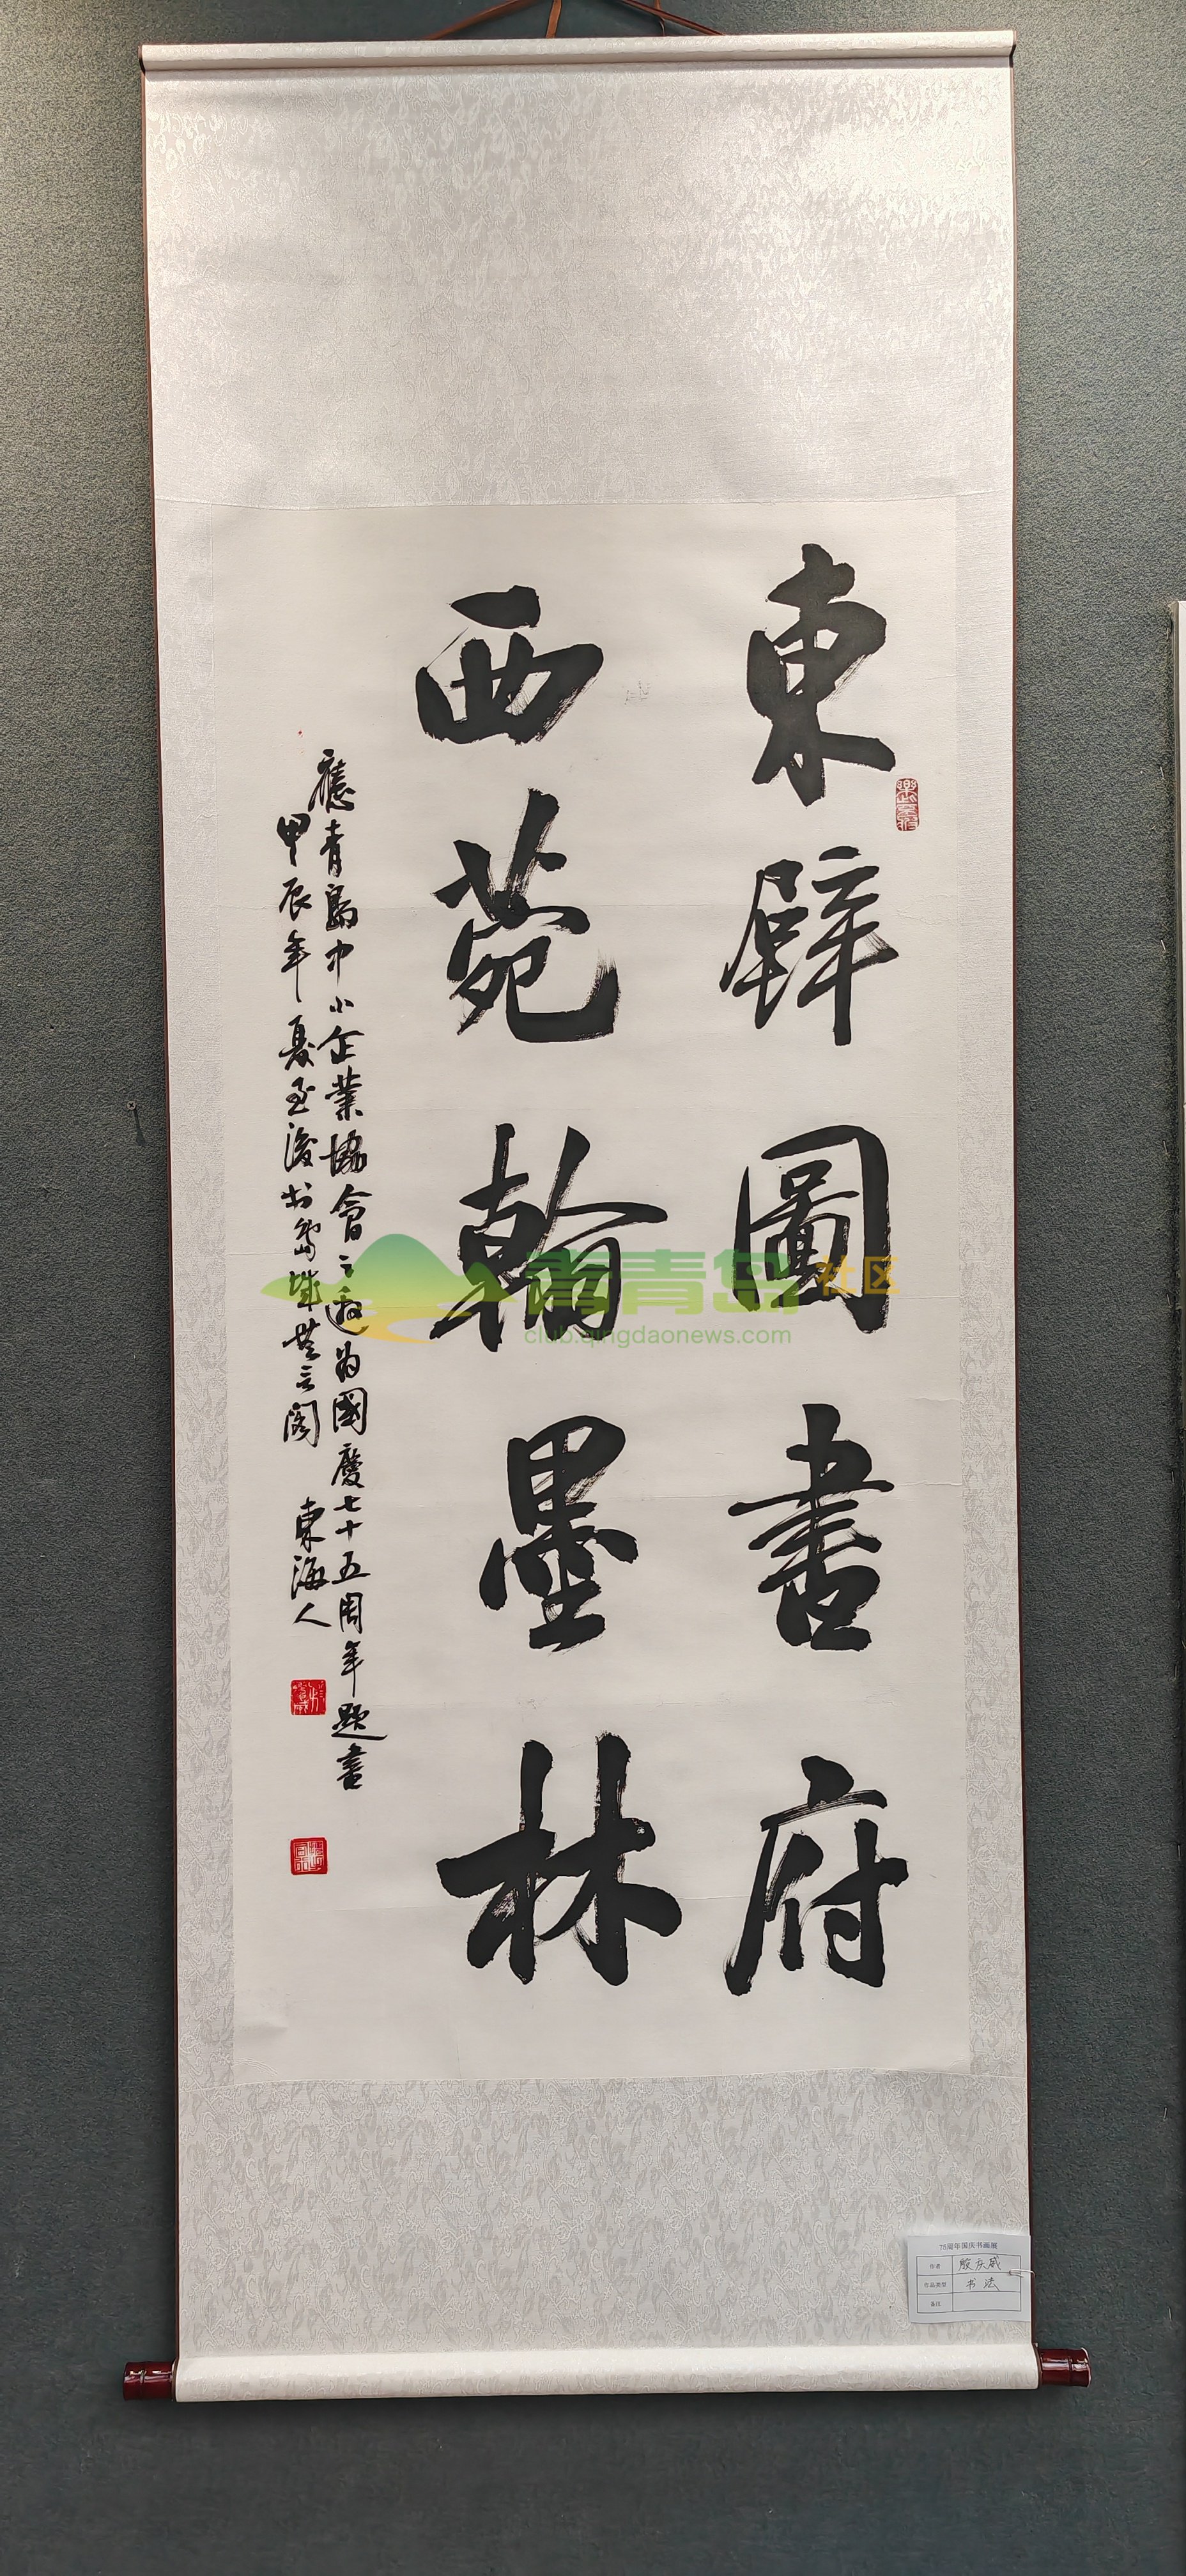 東壁圖書府
西苑翰墨林
應青島中小企業協會之邀為國慶七十五周年題書
甲辰年夏至後於島城芸言閣 東海人
青青岛社区
club.qingdaonews.com
75周年国庆书画展
作者 殷庆威
作品类型 书法
备注